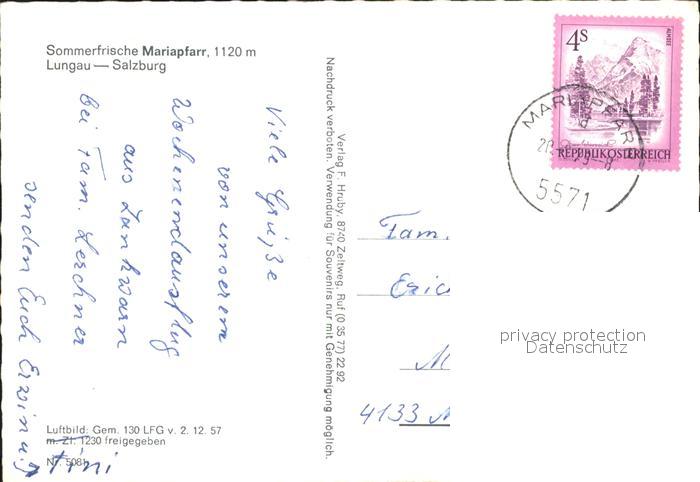 Sommerfrische Mariapfarr, 1120 m
Lungau — Salzburg
Viele Grüße
von unserem
Wochenendausflug
aus Zankwarn
bei Fam. Lerchner
senden Euch Erwin u.
Tini
Luftbild: Gem. 130 LFG v. 2. 12. 57
m. Zl. 1230 freigegeben
Nr. 5081
Verlag F. Hruby, 8740 Zeltweg, Ruf (0 35 77) 22 92
Nachdruck verboten. Verwendung für Souvenirs nur mit Genehmigung möglich.
4S
ALMSEE
REPUBLIK ÖSTERREICH
MARIAPFARR
5571
Fam.
Eric
M
4133 M
privacy protection
Datenschutz